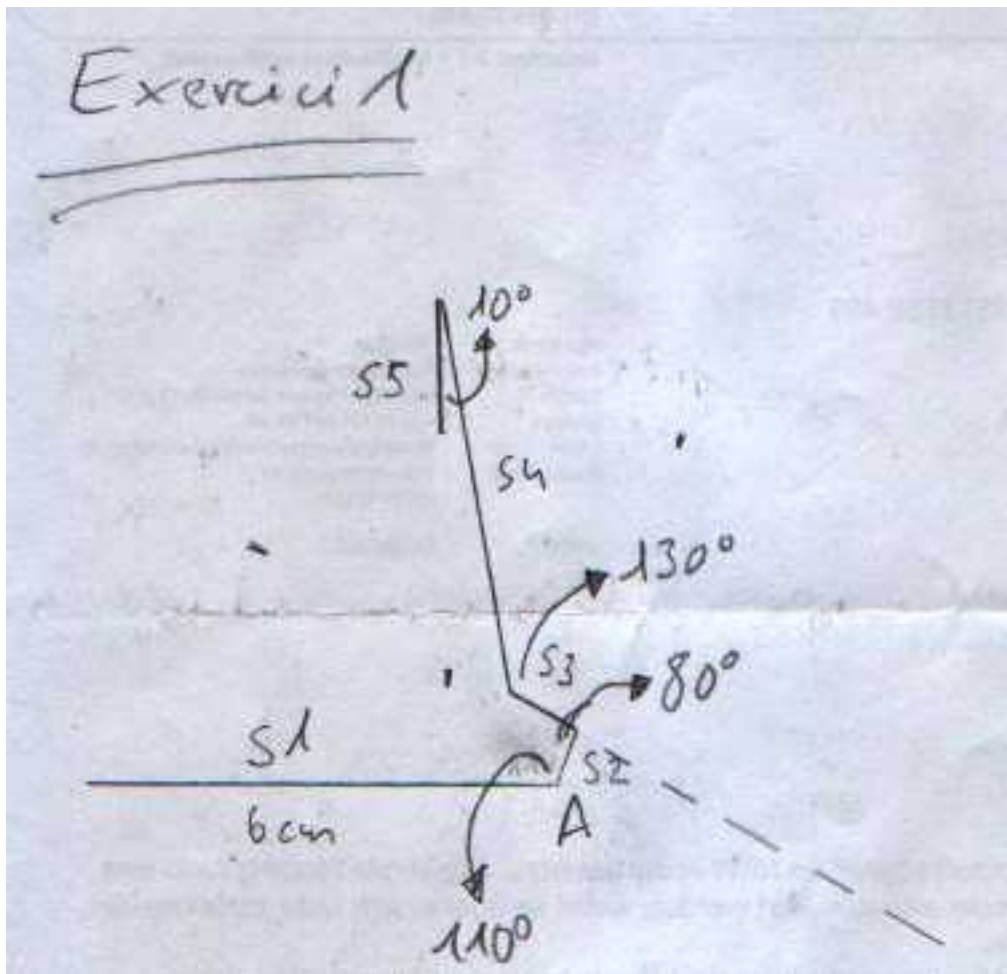 Exercici 1
10º
S5
S4
130º
S3
80º
S1
S2
6 cm
A
110º